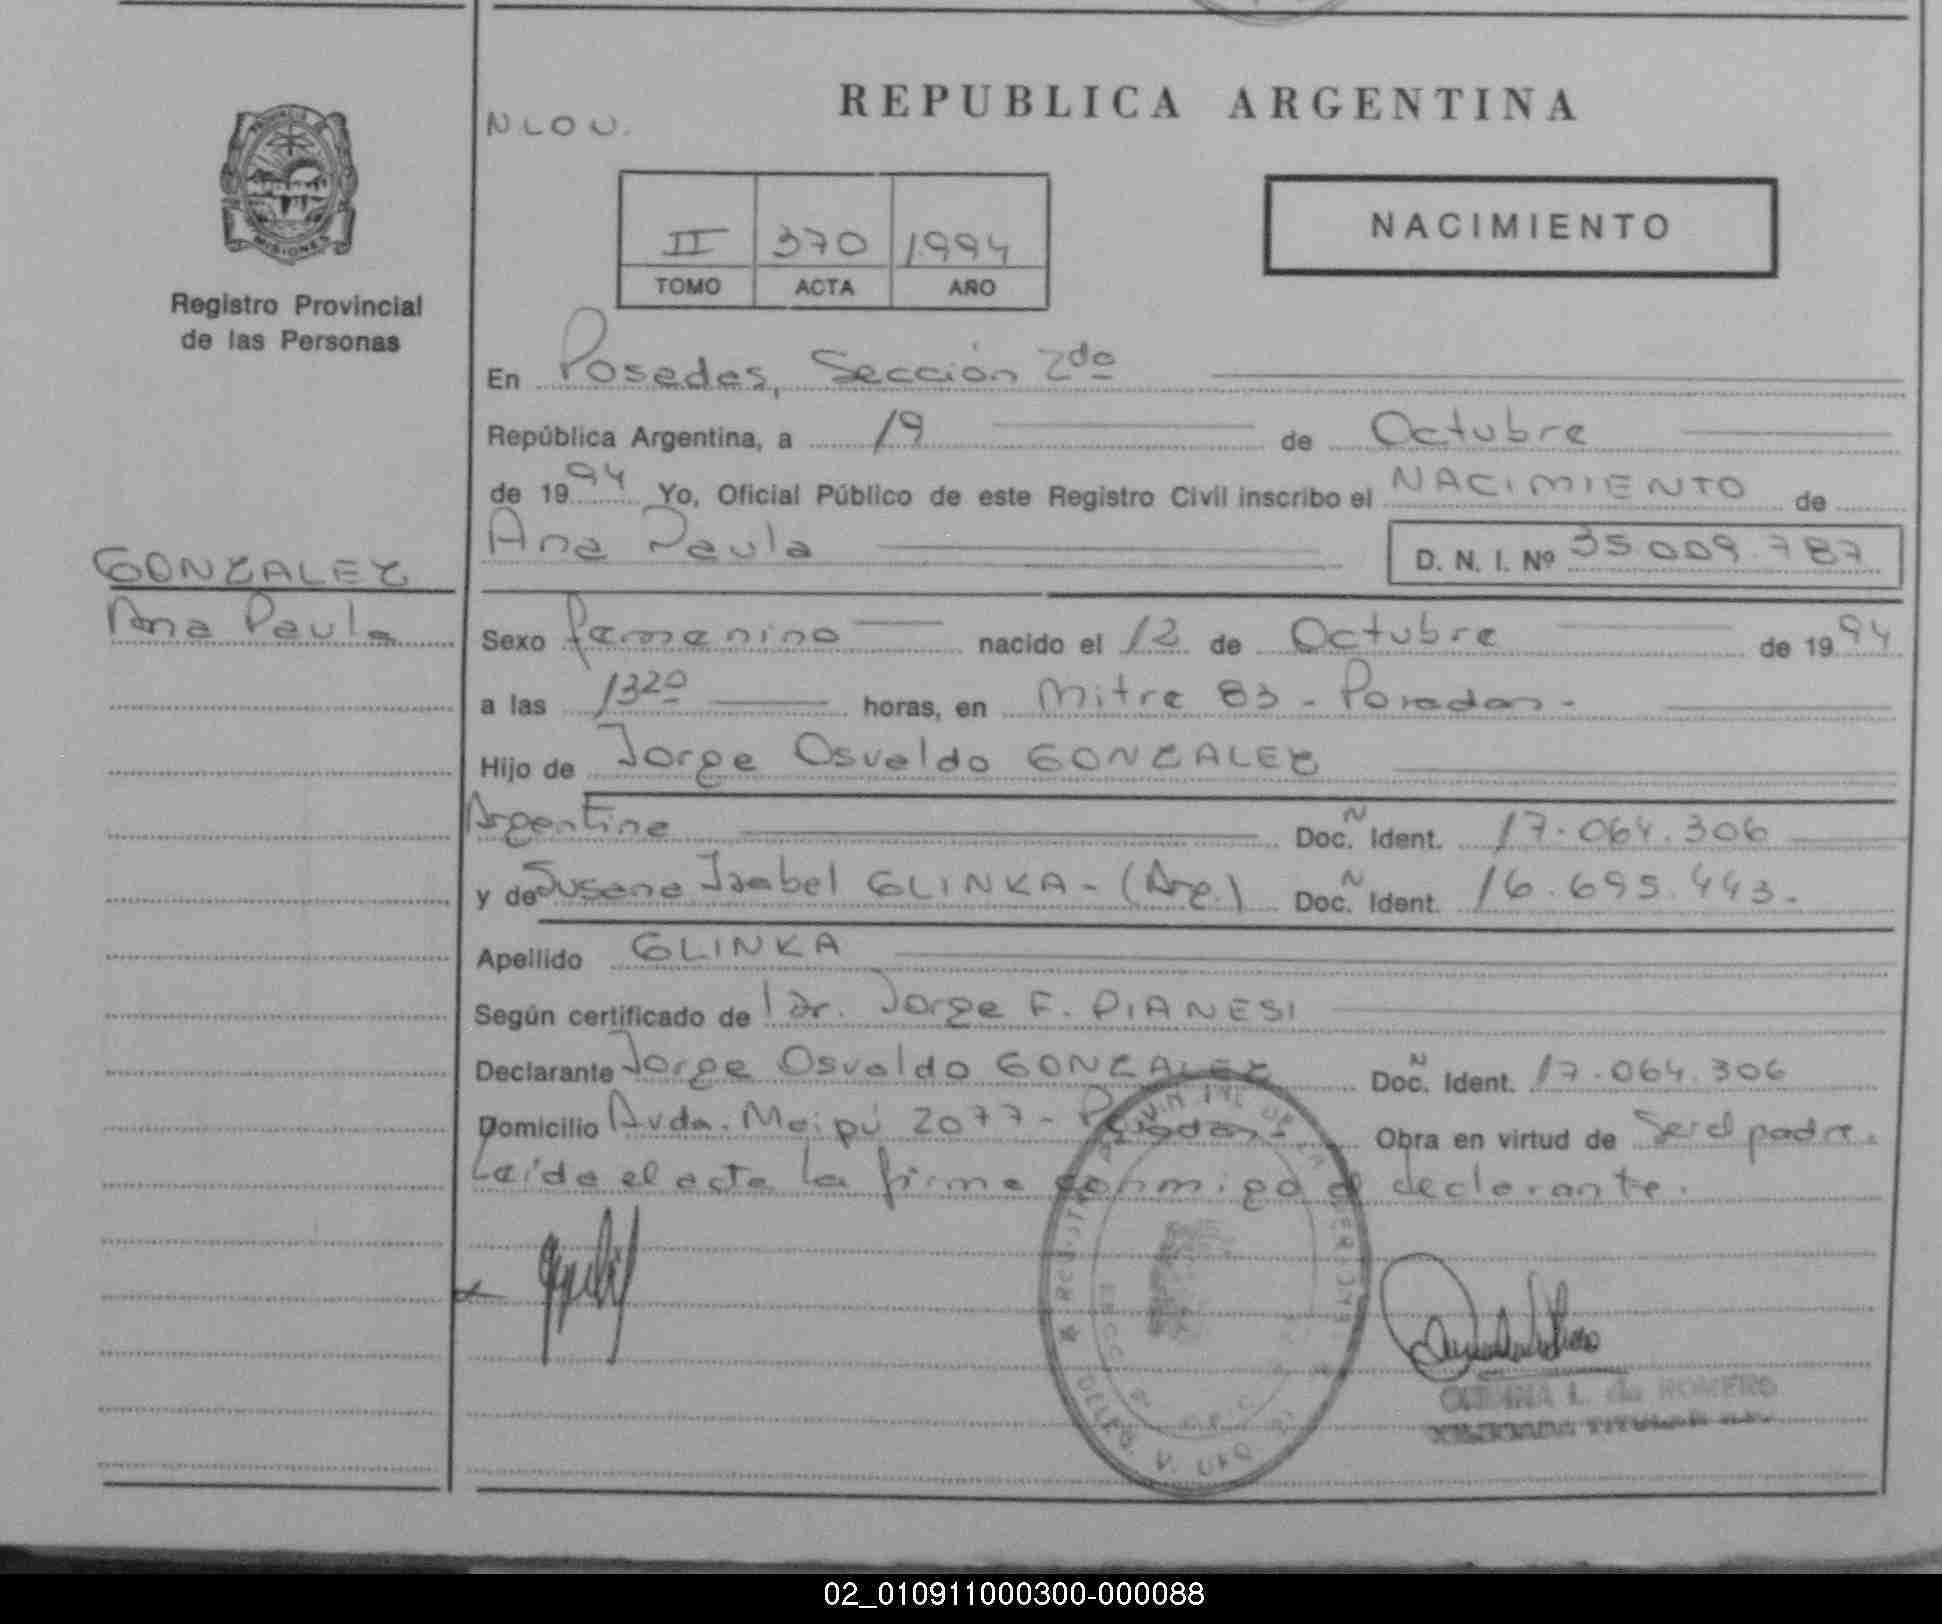 REPUBLICA ARGENTINA
NLOU.
MISIONES
Registro Provincial
de las Personas
II 370 1994
TOMO ACTA AÑO
NACIMIENTO
En Posadas, Sección 2da
República Argentina, a 19 de Octubre
de 1994 Yo, Oficial Público de este Registro Civil inscribo el NACIMIENTO de
Ana Paula D. N. I. Nº 35.009.787
GONZALEZ
Ana Paula
Sexo femenino nacido el 12 de Octubre de 1994
a las 1320 horas, en Mitre 83 - Posadas -
Hijo de Jorge Osvaldo GONZALEZ
Argentina Doc. Ñ Ident. 17.064.306
y de Susana Isabel GLINKA - (Arg.) Doc. Ñ Ident. 16.695.443.-
Apellido GLINKA
Según certificado de Dr. Jorge F. PIANESI
Declarante Jorge Osvaldo GONZALEZ Doc. Ñ Ident. 17.064.306
Domicilio Avda. Maipú 2077 - Posadas - Obra en virtud de Ser el padre.
Leída el acta la firma conmigo el declarante.
L. de ROMERO
02_010911000300-000088